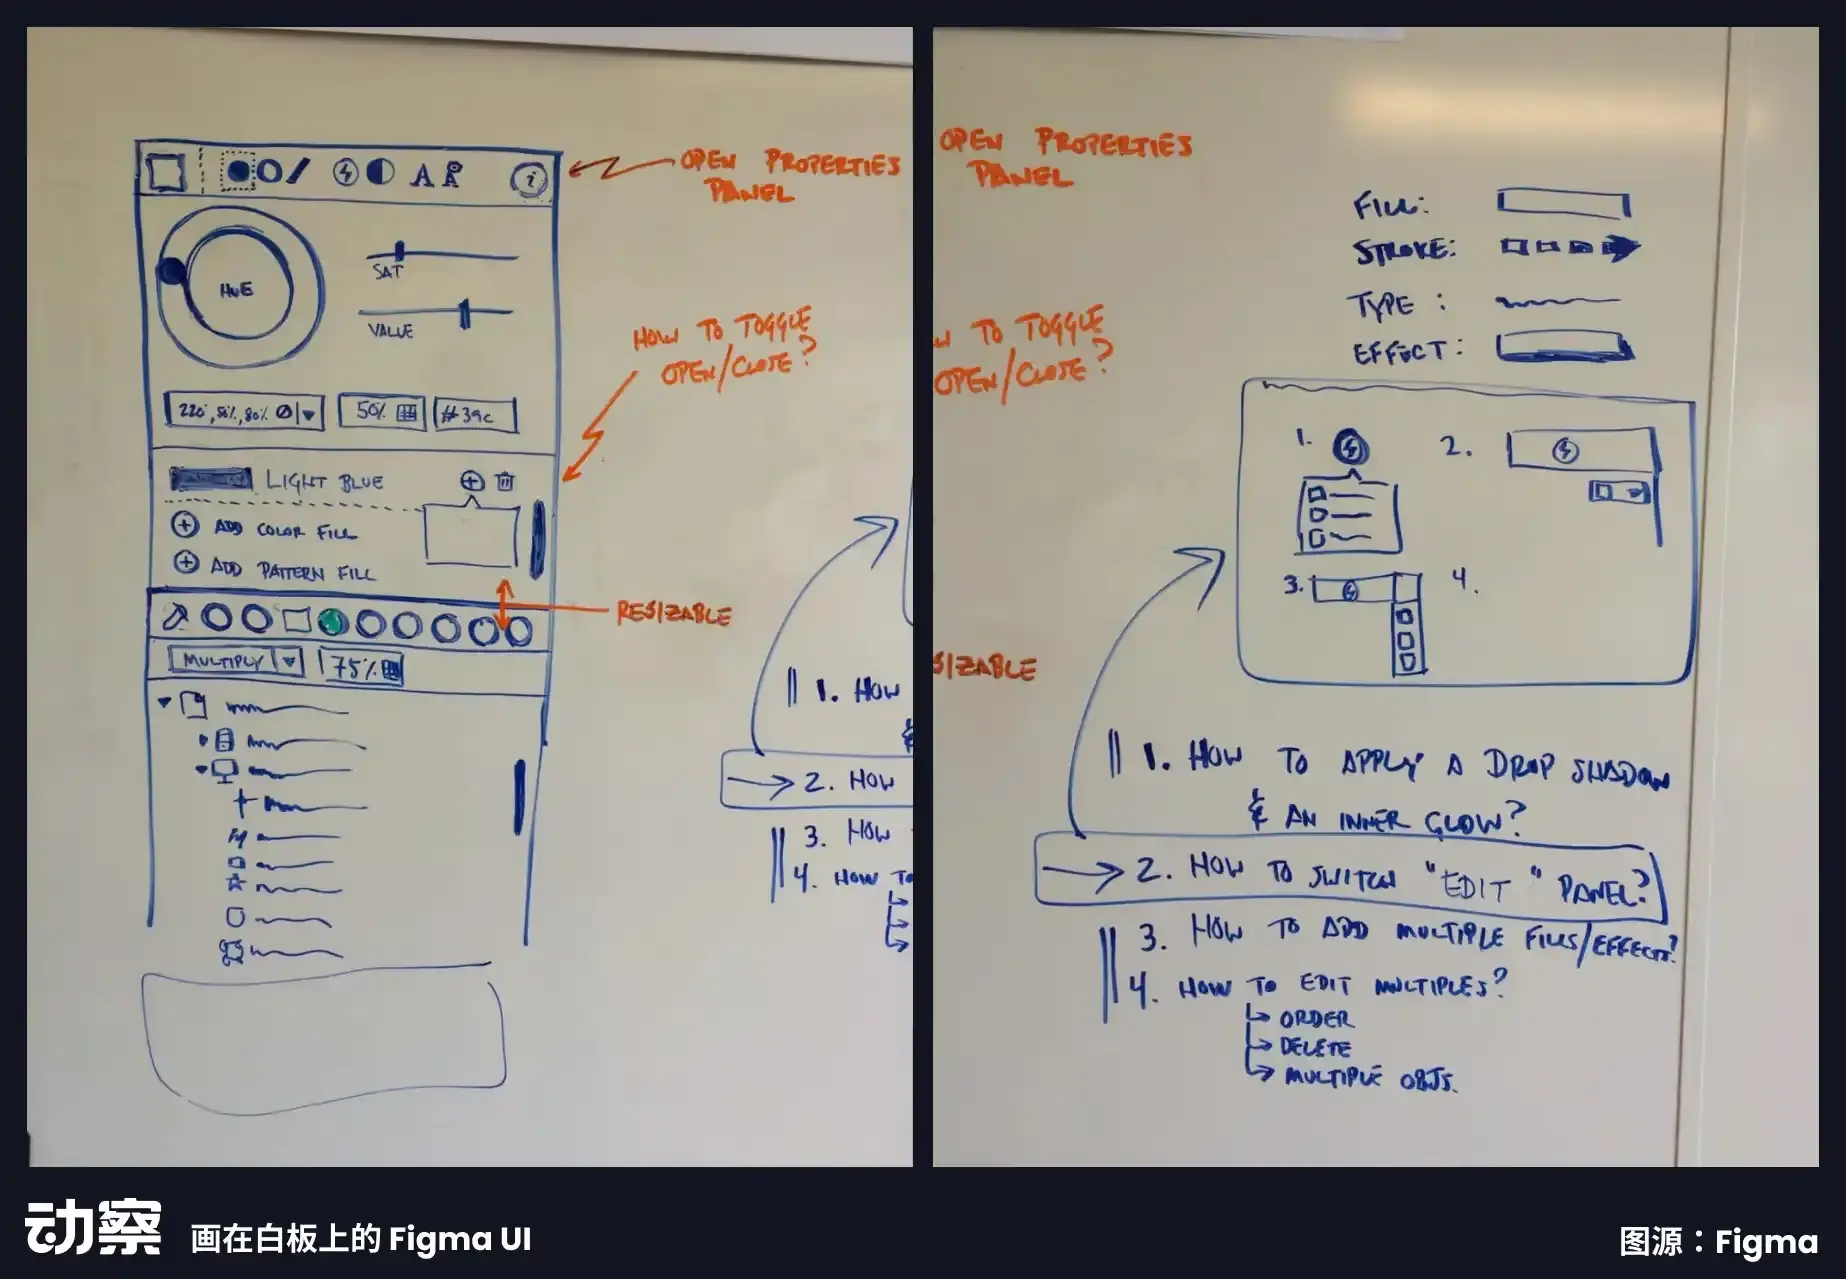 A
i
OPEN PROPERTIES
PANEL
HUE
SAT
VALUE
HOW TO TOGGLE
OPEN/CLOSE?
50%
#39c
LIGHT BLUE
ADD COLOR FILL
ADD PATTERN FILL
RESIZABLE
MULTIPLY
75%
1. HOW
&
2. HOW
3. HOW
4. HOW TO
OPEN PROPERTIES
PANEL
W TO TOGGLE
OPEN/CLOSE?
SIZABLE
FILL:
STROKE:
TYPE :
EFFECT:
1.
2.
3.
4.
1. HOW TO APPLY A DROP SHADOW
& AN INNER GLOW?
2. HOW TO SWITCH "EDIT" PANEL?
3. HOW TO ADD MULTIPLE FILLS/EFFECTS?
4. HOW TO EDIT MULTIPLES?
ORDER
DELETE
MULTIPLE OBJS.
动察
画在白板上的 Figma UI
图源：Figma